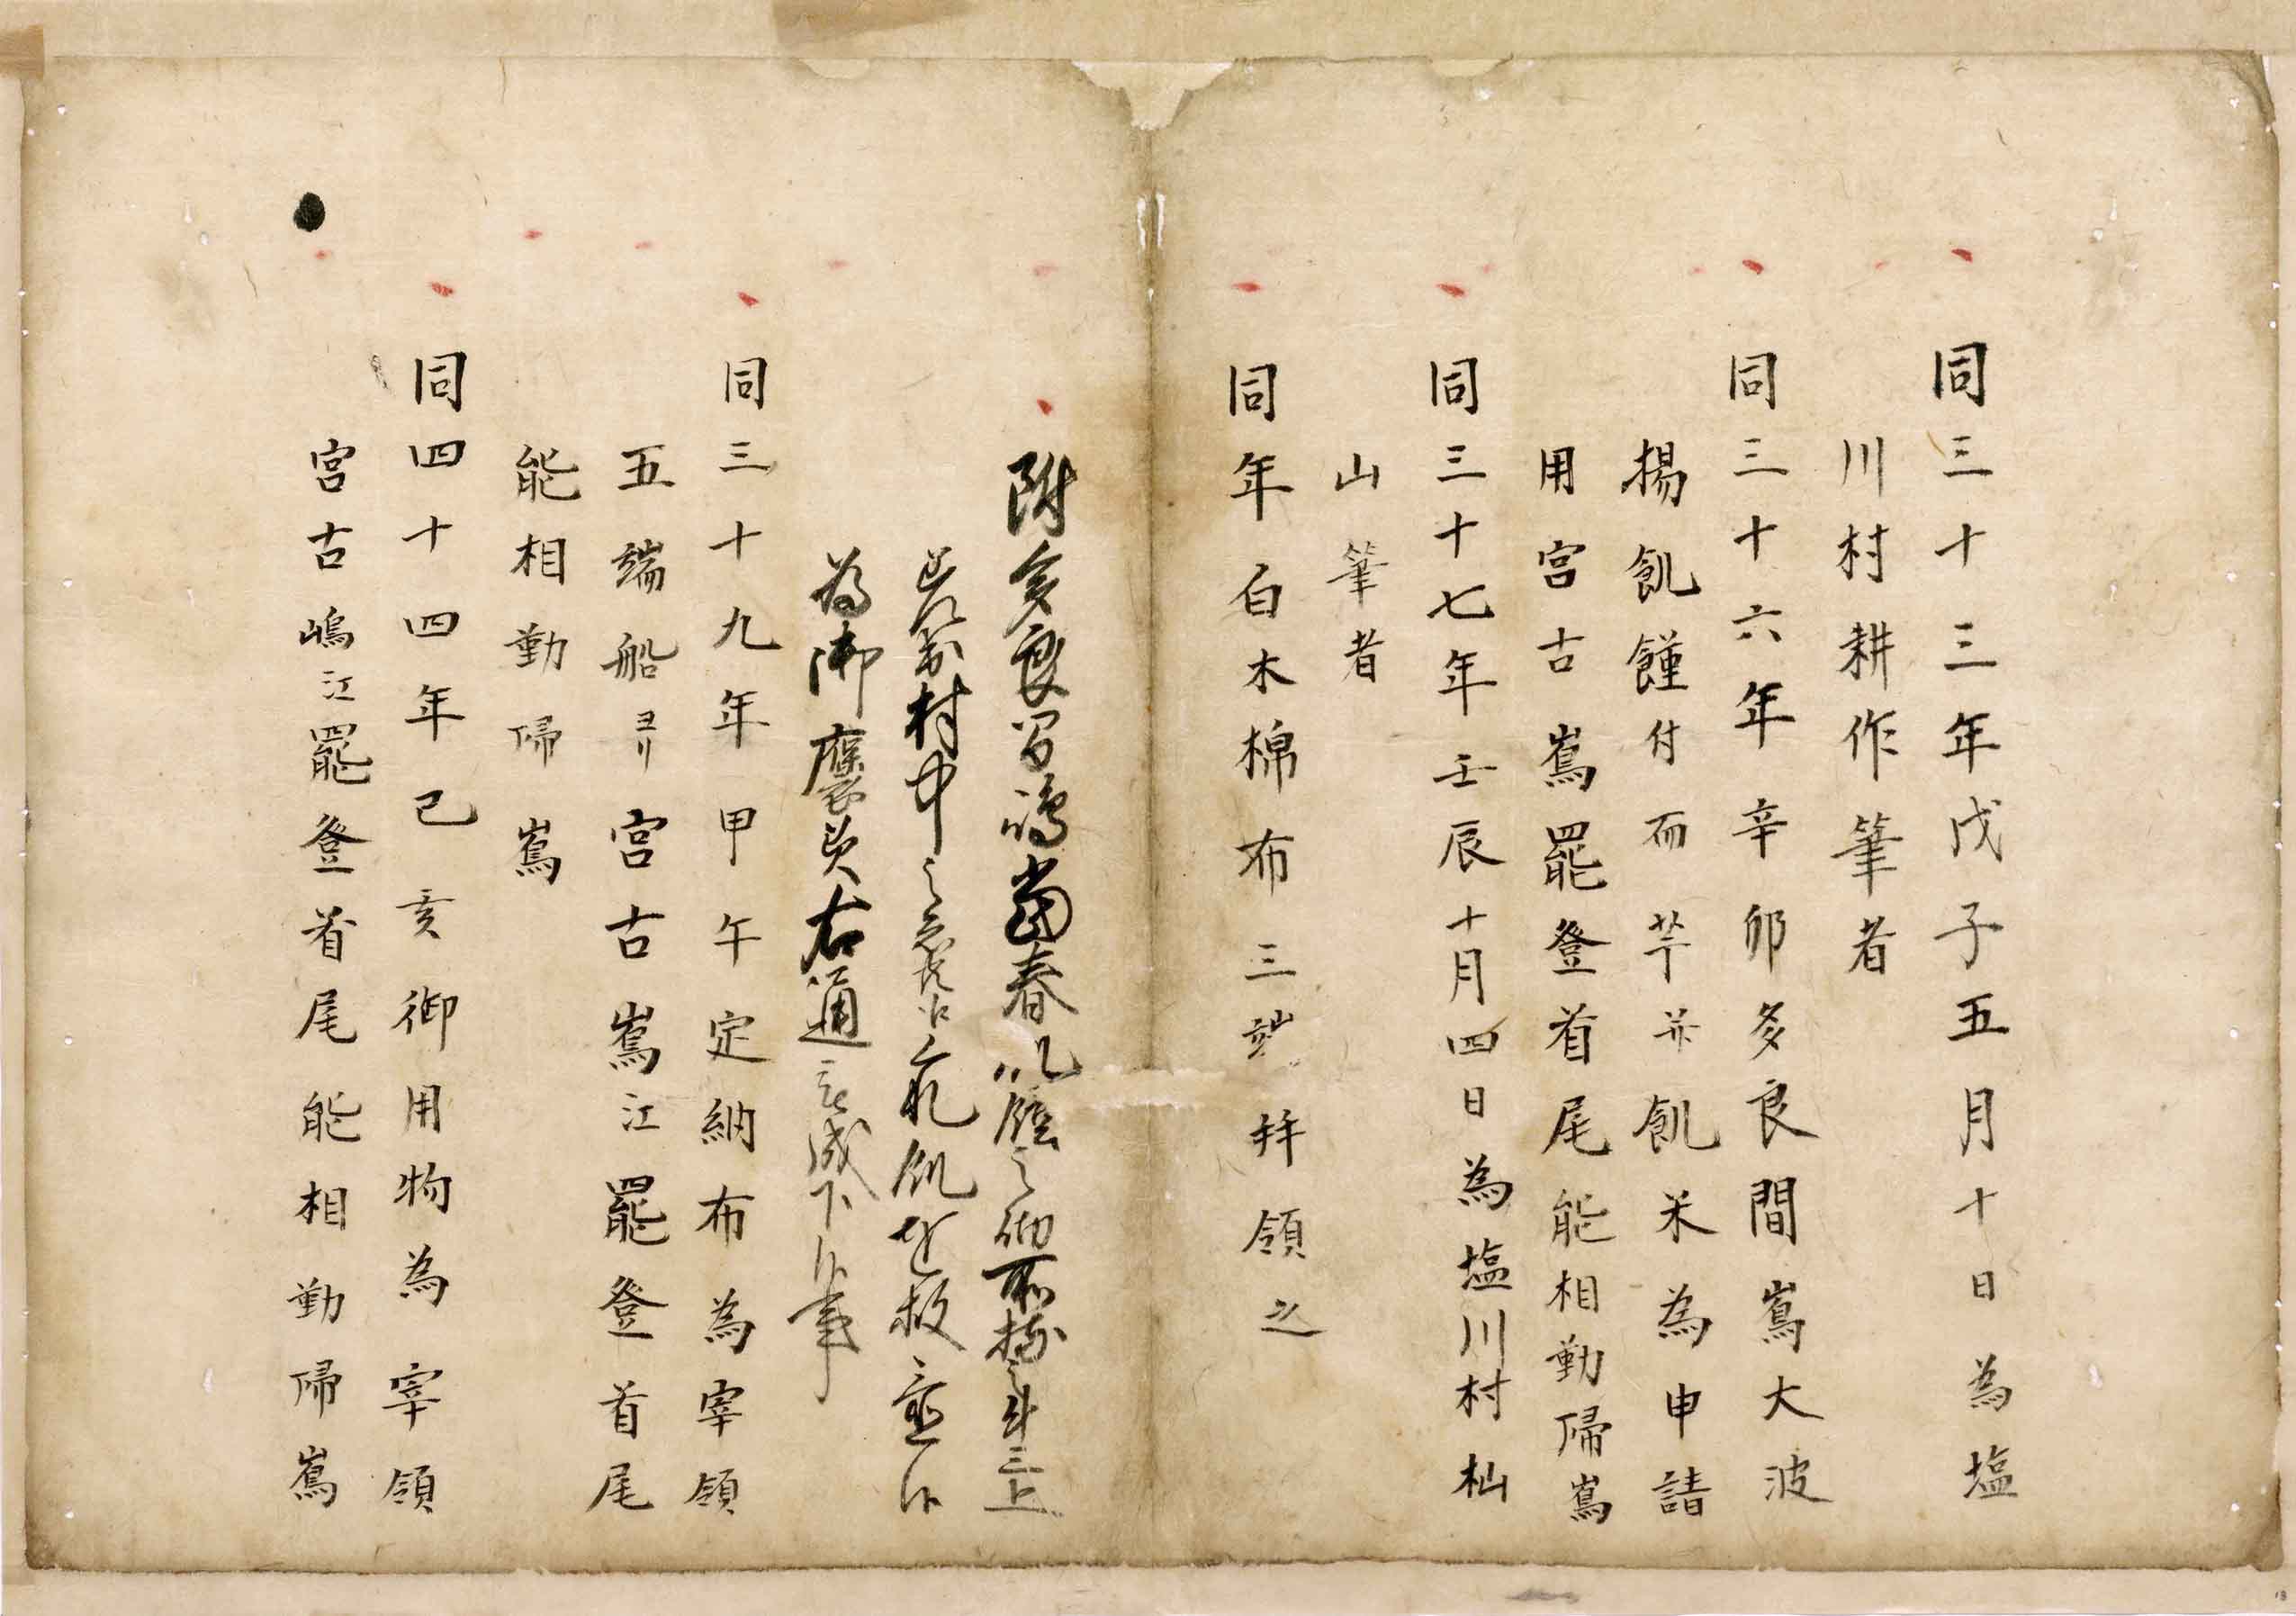 同三十三年戊子五月十日為塩
川村耕作筆者
同三十六年辛卯多良間嶌大波
揚飢饉付而芋并飢米為申請
用宮古嶌罷登首尾能相勤帰嶌
同三十七年壬辰十月四日為塩川村杣
山筆者
同年白木棉布三端拝領之
附多良間嶋当春飢饉之砌所持之斗三上
村中之
飢を救
為御褒美右通被成下候事
同三十九年甲午定納布為宰領
五端船ヨリ宮古嶌江罷登首尾
能相勤帰嶌
同四十四年己亥御用物為宰領
宮古嶋江罷登首尾能相勤帰嶌